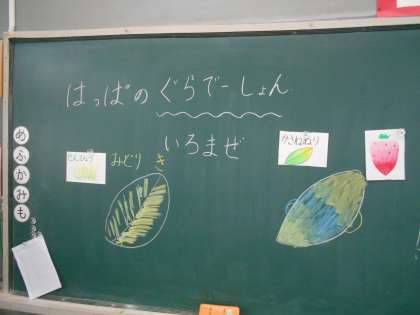 はっぱの ぐらでーしょん
いろまぜ
かさねぬり
みどり き
め
ふ
か
み
も